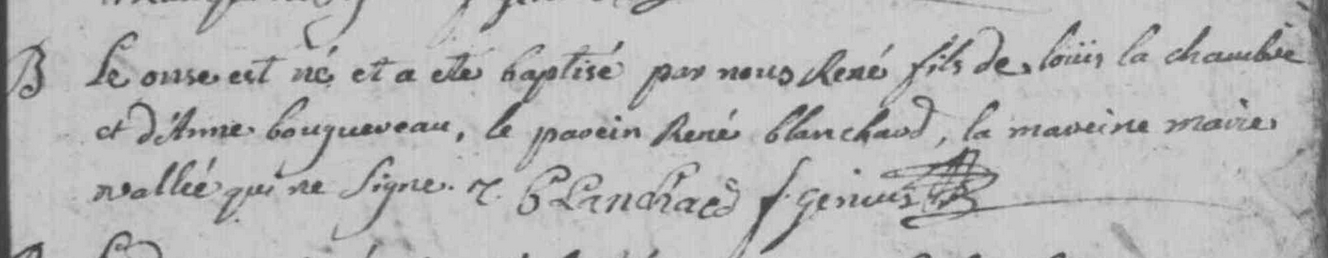 B Le onse est né et a ete baptisé par nous René fils de loüis la chambre
et d'Anne bouquereau, le parein René blanchard, la mareine marie
vallée qui ne signe. r. blanchard f. genius